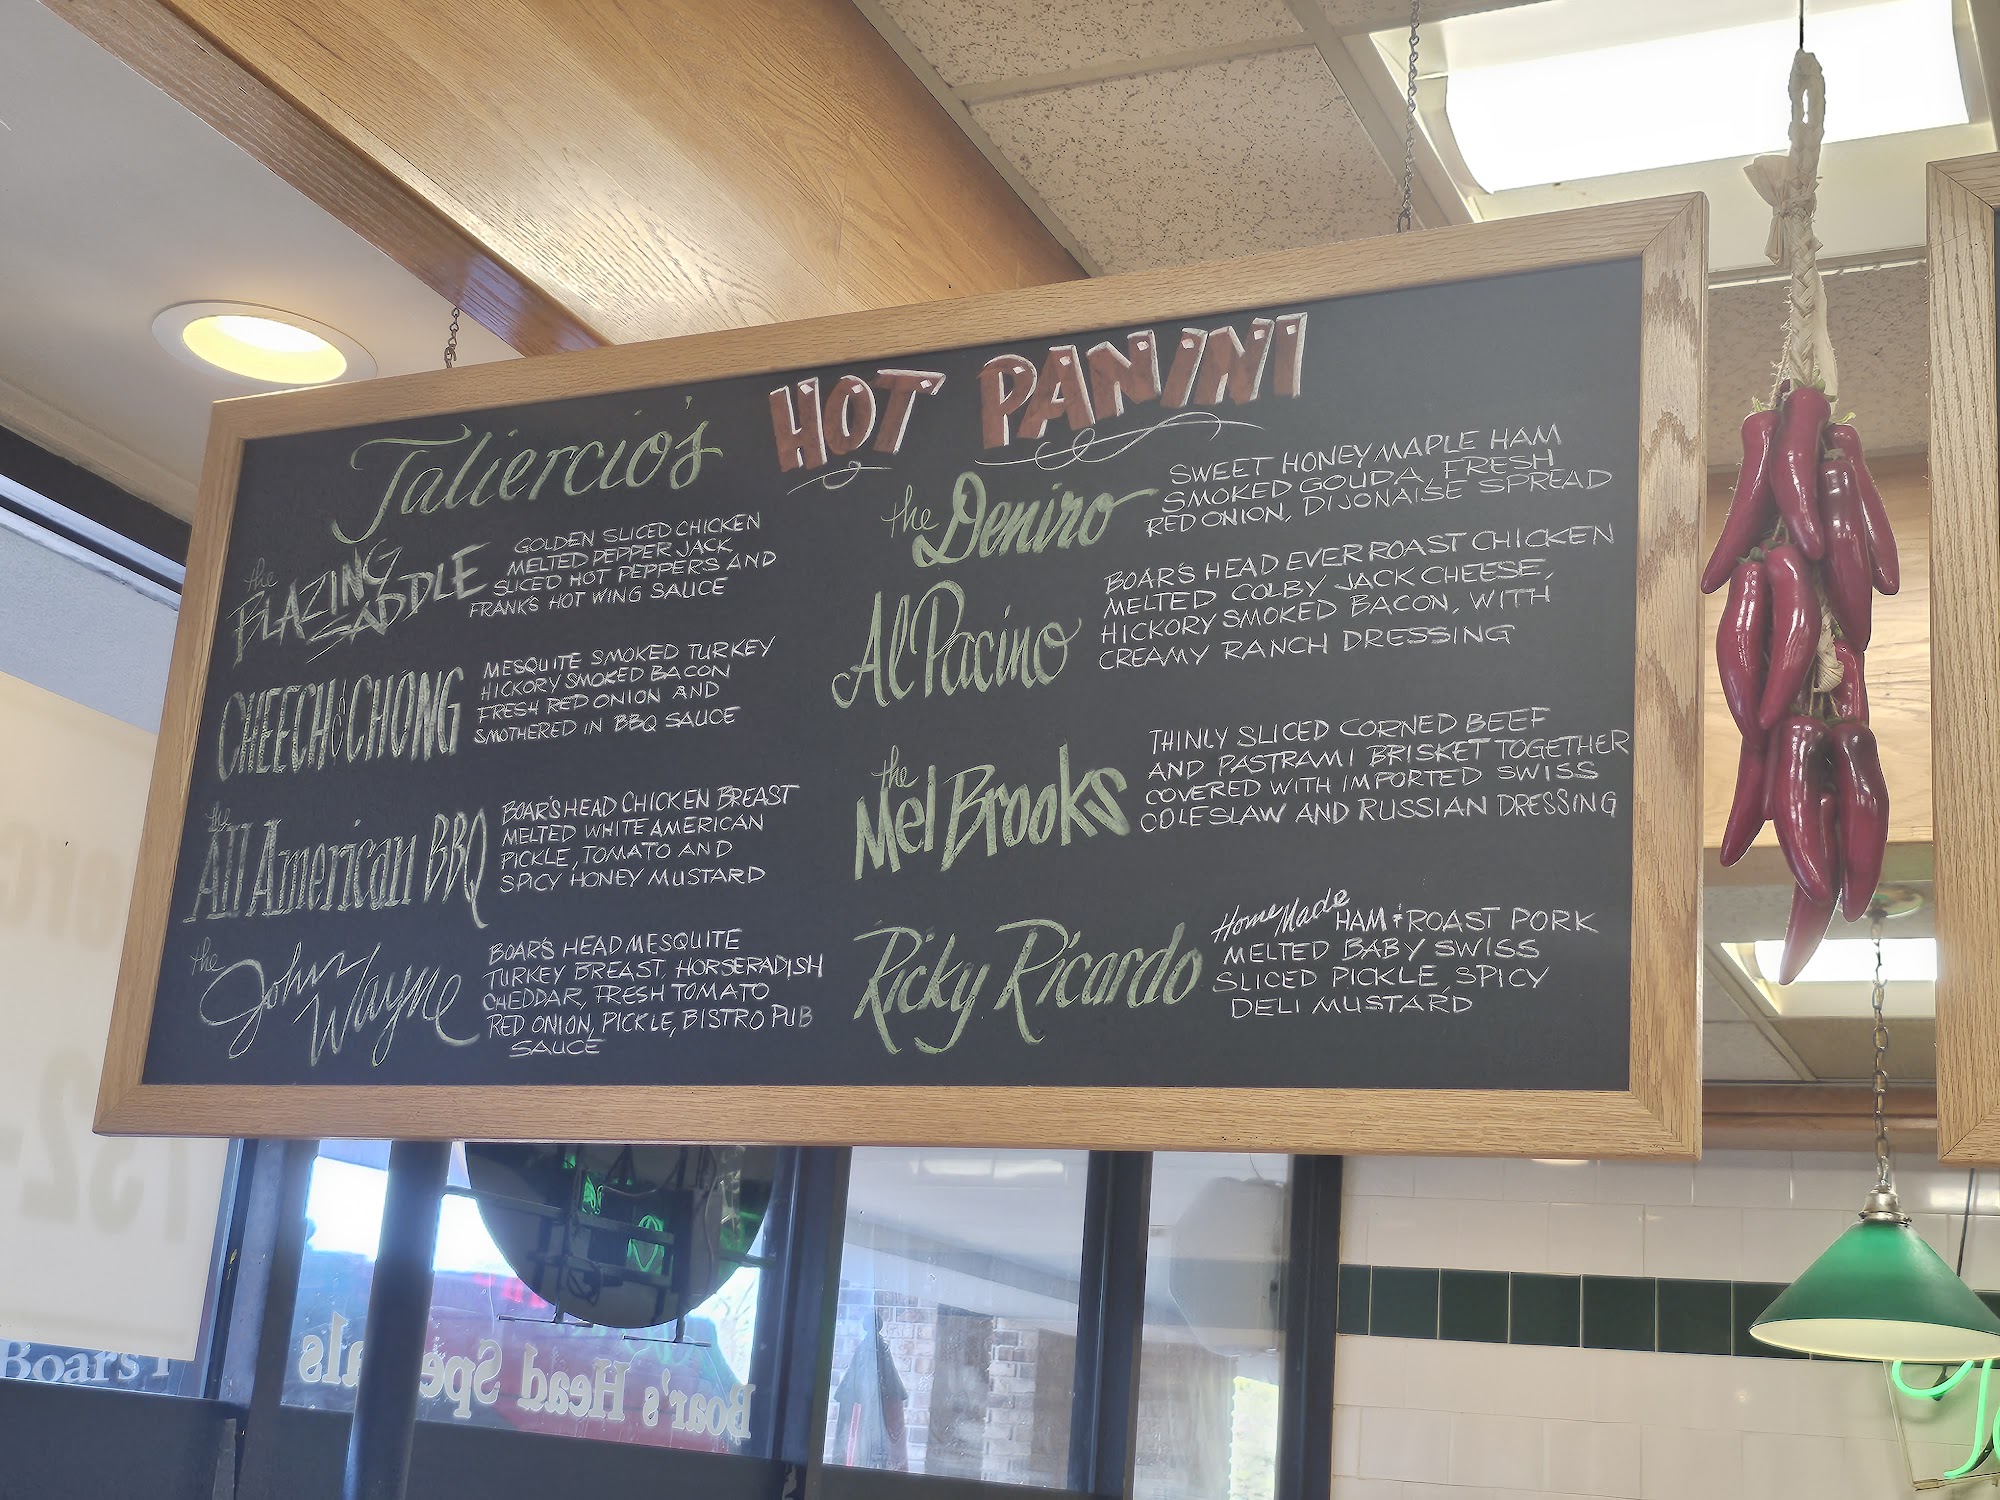 Taliercio's HOT PANINI
the BLAZING SADDLE
GOLDEN SLICED CHICKEN
MELTED PEPPER JACK
SLICED HOT PEPPERS AND
FRANK'S HOT WING SAUCE
CHEECH & CHONG
MESQUITE SMOKED TURKEY
HICKORY SMOKED BACON
FRESH RED ONION AND
SMOTHERED IN BBQ SAUCE
the All American BBQ
BOAR'S HEAD CHICKEN BREAST
MELTED WHITE AMERICAN
PICKLE, TOMATO AND
SPICY HONEY MUSTARD
the John Wayne
BOAR'S HEAD MESQUITE
TURKEY BREAST, HORSERADISH
CHEDDAR, FRESH TOMATO
RED ONION, PICKLE, BISTRO PUB
SAUCE
the Deniro
SWEET HONEY MAPLE HAM
SMOKED GOUDA, FRESH
RED ONION, DIJONAISE SPREAD
Al Pacino
BOAR'S HEAD EVER ROAST CHICKEN
MELTED COLBY JACK CHEESE,
HICKORY SMOKED BACON, WITH
CREAMY RANCH DRESSING
the Mel Brooks
THINLY SLICED CORNED BEEF
AND PASTRAMI BRISKET TOGETHER
COVERED WITH IMPORTED SWISS
COLESLAW AND RUSSIAN DRESSING
Ricky Ricardo
Home Made HAM & ROAST PORK
MELTED BABY SWISS
SLICED PICKLE, SPICY
DELI MUSTARD
Boar's Head Specials
Boar's